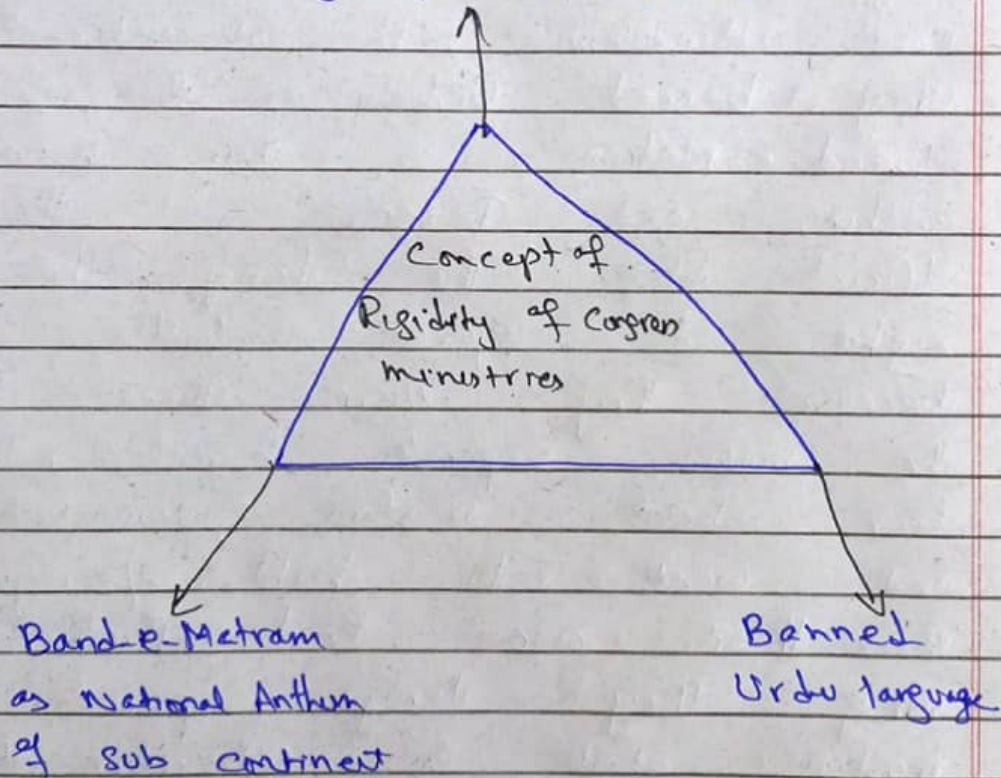 Concept of
Rigidity of Congress
ministries
Band-e-Matram
as National Anthem
of Sub continent
Banned
Urdu language